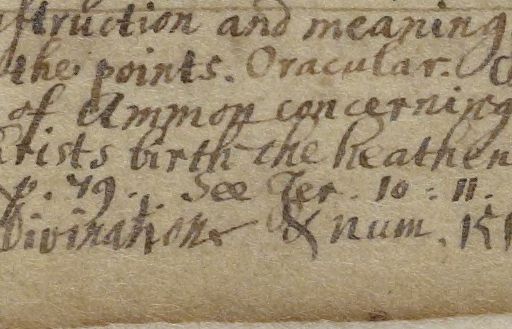 struction and meaning
the points. Oracular.
of Ammon concerning
rists birth the heathen
p. 79. See Jer. 10: 11.
Divinations & num. 15